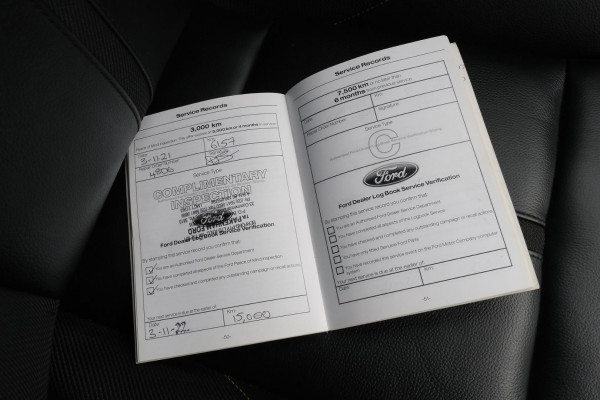 Service Records
3,000 km
Date
Km
3-11-21
6157
Repair Order Number:
4806
Service Type
COMPLIMENTARY
INSPECTION
Ford
PAKENHAM FORD
Ford Dealer Log Book Service Verification
By stamping this service record you confirm that:
You are an Authorised Ford Dealer Service Department
You have completed all aspects of the Peace of Mind Inspection
You have checked and completed any outstanding campaign or recall actions
Your next service is due at the earlier of:
Date
Km:
3-11-22
15,000
-50-
Service Records
7,500 km or no later than
6 months from previous service
Date
Km:
Repair Order Number:
Signature:
Service Type
C
Ford
Ford Dealer Log Book Service Verification
By stamping this service record you confirm that:
You are an Authorised Ford Dealer Service Department
You have completed all aspects of the Logbook Service
You have checked and completed any outstanding campaign or recall actions
You have only fitted Genuine Ford Parts
You have recorded this service event on the Ford Motor Company computer
system
Your next service is due at the earlier of:
Date
Km:
-51-